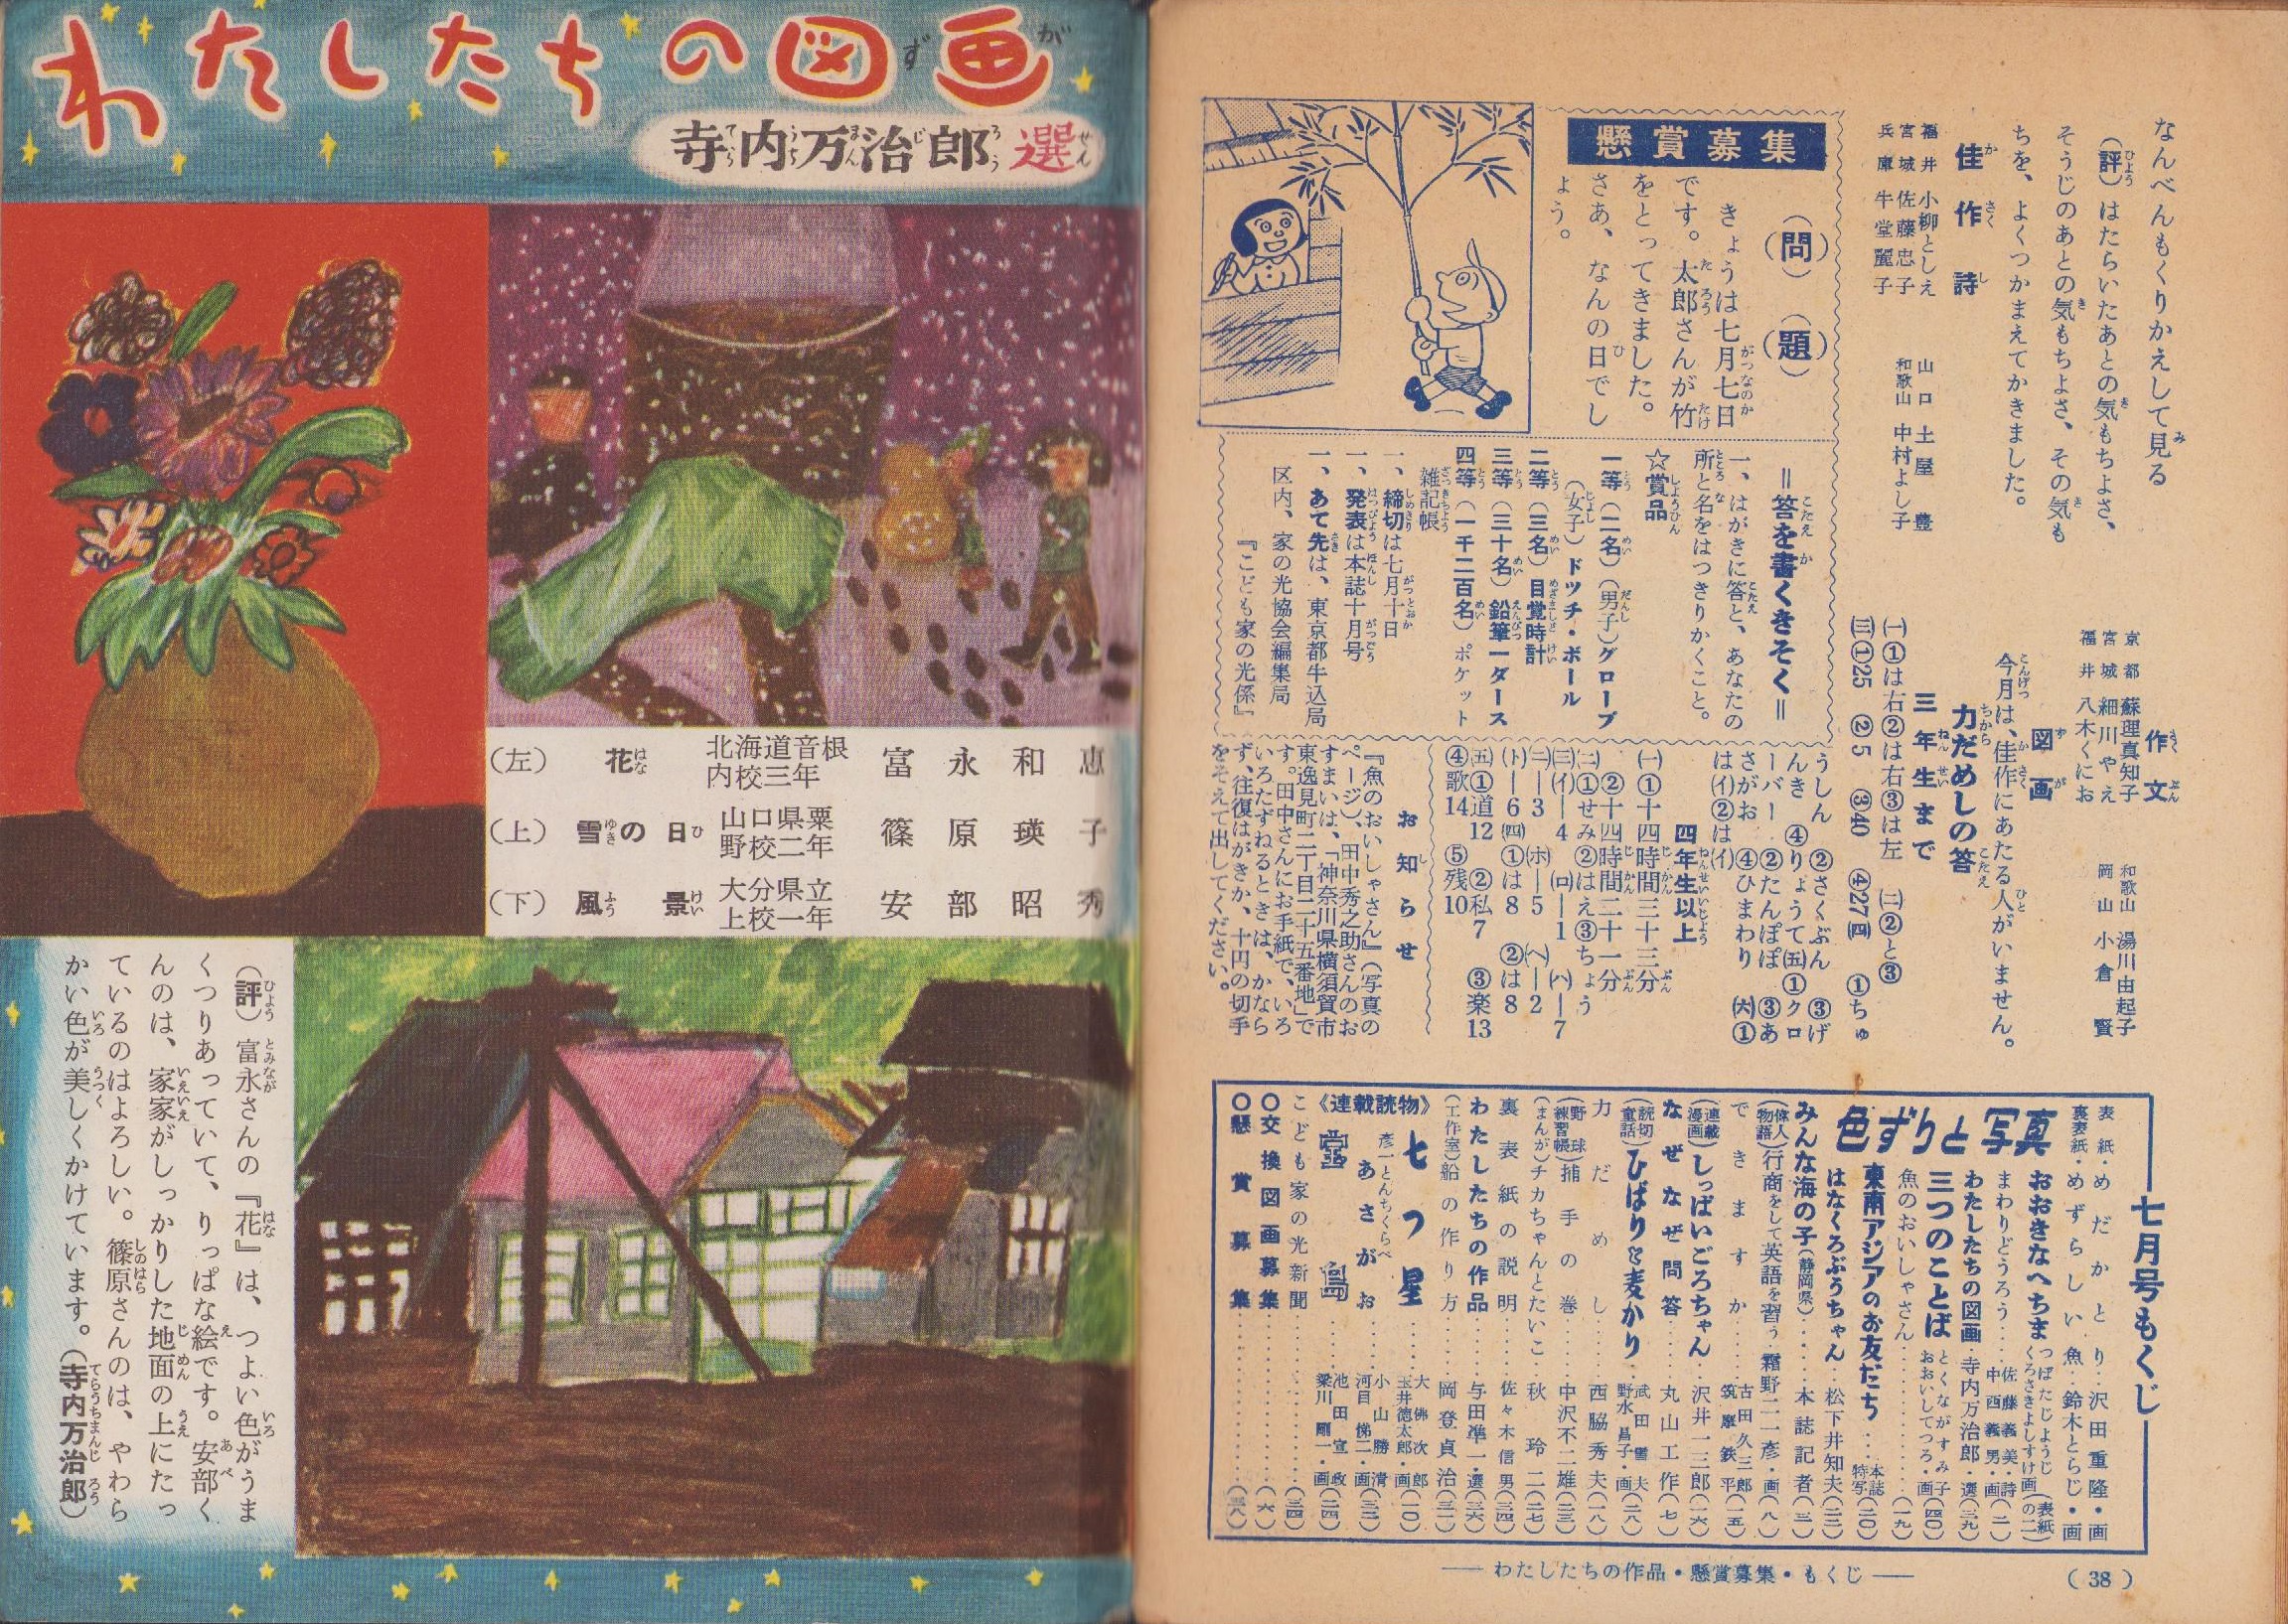 なんべんもくりかえして見る
(評)はたらいたあとの気もちよさ、
そうじのあとの気もちよさ、その気も
ちを、よくつかまえてかきました。
佳作詩
福井 小柳としえ
宮城 佐藤忠子
兵庫 牛堂麗子
山口 土屋豊
和歌山 中村よし子
作文
京都 蘇理真知子
宮城 細川やえ
福井 八木くにお
和歌山 湯川由起子
岡山 小倉賢
図画
今月は、佳作にあたる人がいません。
力だめしの答
三年生まで
㈠①は右②は右③は左 ㈡②と③
㈢①25 ②5 ③40 ④27㈣ ①ちゅ
うしん ②さくぶん ③げ
んき ④りょうて㈤①クロ
ーバー ②たんぽぽ ③あ
さがお ④ひまわり ㈥①
は(イ)②は(イ)
四年生以上
㈠①十四時間三十三分
②十四時間二十一分
㈡①せみ②はえ③ちょう
㈢(イ)―4 (ロ)―1 (ハ)―7
(ニ)―3 (ホ)―5 (ヘ)―2
(ト)―6㈣①は8 ②は8
㈤①道12 ②私7 ③楽13
④歌14 ⑤残10
お知らせ
『魚のおいしゃさん』(写真の
ページ)、田中秀之助さんのお
すまいは、「神奈川県横須賀市
東逸見町二丁目二十五番地」で
す。田中さんにお手紙で、いろ
いろたずねるときは、かなら
ず、往復はがきか、十円の切手
をそえて出してください。
懸賞募集
(問)(題)
きょうは七月七日
です。太郎さんが竹
をとってきました。
さあ、なんの日でし
ょう。
=答を書くきそく=
一、はがきに答と、あなたの
所と名をはっきりかくこと。
☆賞品
一等(二名)(男子)グローブ
(女子)ドッチ・ボール
二等(三名)目覚時計
三等(三十名)鉛筆一ダース
四等(一千二百名)ポケット
雑記帳
一、締切は七月十日
一、発表は本誌十月号
一、あて先は、東京都牛込局
区内、家の光協会編集局
『こども家の光係』
七月号もくじ
表紙・めだかとり 沢田重隆・画
裏表紙・めずらしい魚 鈴木とらじ・画
色ずりと写真
おおきなへちま つぼたじょうじ くろさきよしすけ画(表紙の二)
まわりどうろう 佐藤義美・詩 中西義男・画(二)
わたしたちの図画 寺内万治郎・選(三九)
三つのことば とくながすみ子 おおいしてつろ・画(四〇)
魚のおいしゃさん(一九)
東南アジアのお友だち 本誌特写(二〇)
はなくろぶうちゃん 松下井知夫(二二)
みんな海の子(静岡県) 本誌記者(三)
(偉人物語)行商をして英語を習う 霜野二一彦・画(八)
できますか 古田久三郎 筑摩鉄平(一五)
(連載漫画)しっぱいごろちゃん 沢井一三郎(一六)
なぜなぜ問答 丸山工作(七)
(読切童話)ひばりと麦かり 武田雪夫 野水昌子・画(二八)
力だめし 西脇秀夫(一八)
(野球練習帳)捕手の巻 中沢不二雄(三三)
(まんが)チカちゃんとたいこ 秋玲二(二七)
裏表紙の説明 佐々木信男(三四)
わたしたちの作品 与田準一・選(三六)
(工作室)船の作り方 岡登貞治(三一)
《連載読物》
七つ星 大佛次郎 玉井徳太郎・画(一〇)
彦一とんちくらべ あさがお 小山勝清 河目悌二・画(三二)
宝島 池田宣政 梁川剛一・画(二四)
こども家の光新聞(三四)
○交換図画募集(六)
○懸賞募集(三八)
― わたしたちの作品・懸賞募集・もくじ ―
(38)
わたしたちの図画
寺内万治郎選
(左) 花 北海道音根内校三年 富永和恵
(上) 雪の日 山口県粟野校二年 篠原瑛子
(下) 風景 大分県立上校一年 安部昭秀
(評)富永さんの『花』は、つよい色がうま
くつりあっていて、りっぱな絵です。安部く
んのは、家家がしっかりした地面の上にたっ
ているのはよろしい。篠原さんのは、やわら
かい色が美しくかけています。(寺内万治郎)